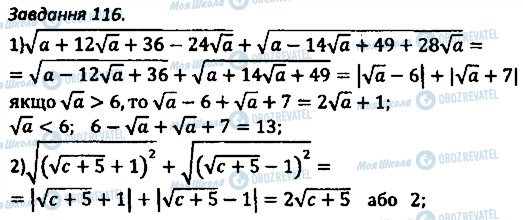 Завдання 116.
1)√(a + 12√a + 36 − 24√a) + √(a − 14√a + 49 + 28√a) =
= √(a − 12√a + 36) + √(a + 14√a + 49) = |√a − 6| + |√a + 7|
якщо √a > 6, то √a − 6 + √a + 7 = 2√a + 1;
√a < 6; 6 − √a + √a + 7 = 13;
2)√((√(c + 5) + 1)²) + √((√(c + 5) − 1)²) =
= |√(c + 5) + 1| + |√(c + 5) − 1| = 2√(c + 5) або 2;